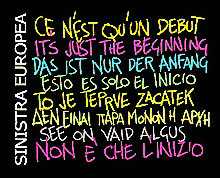 SINISTRA EUROPEA
CE N'EST QU'UN DEBUT
IT'S JUST THE BEGINNING
DAS IST NUR DER ANFANG
ESTO ES SOLO EL INICIO
TO JE TEPRVE ZACATEK
ΔΕΝ ΕΙΝΑΙ ΠΑΡΑ ΜΟΝΟΝ Η ΑΡΧΗ
SEE ON VAID ALGUS
NON È CHE L'INIZIO